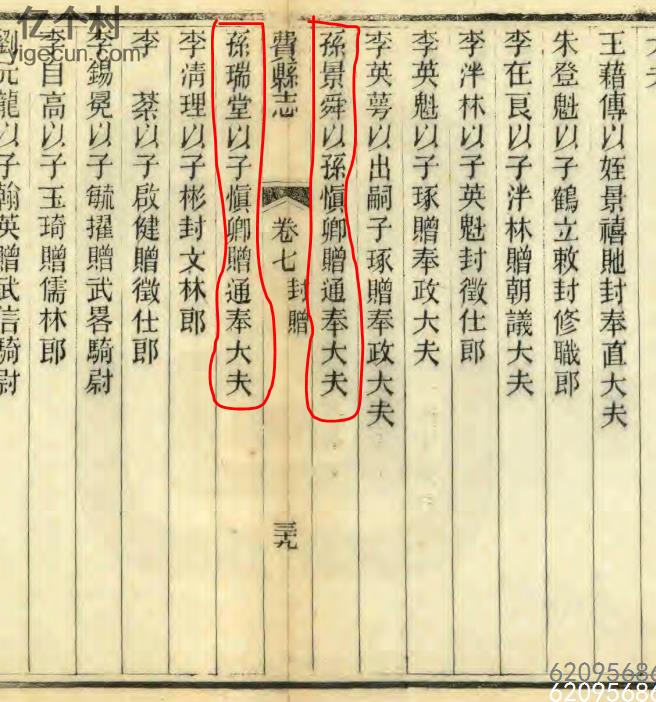 大夫
王藉傳以姪景禧貤封奉直大夫
朱登魁以子鶴立敕封修職郎
李在艮以子泮林贈朝議大夫
李泮林以子英魁封徵仕郎
李英魁以子琢贈奉政大夫
李英萼以出嗣子琢贈奉政大夫
孫景舜以孫愼卿贈通奉大夫
費縣志
卷七 封贈
三十九
孫瑞堂以子愼卿贈通奉大夫
李清理以子彬封文林郎
李 棻以子啟健贈徵仕郎
李錫冕以子毓擢贈武畧騎尉
李自高以子玉琦贈儒林郎
劉元龍以子翰英贈武信騎尉
亿个村
yigecun.com
62095686
62095686